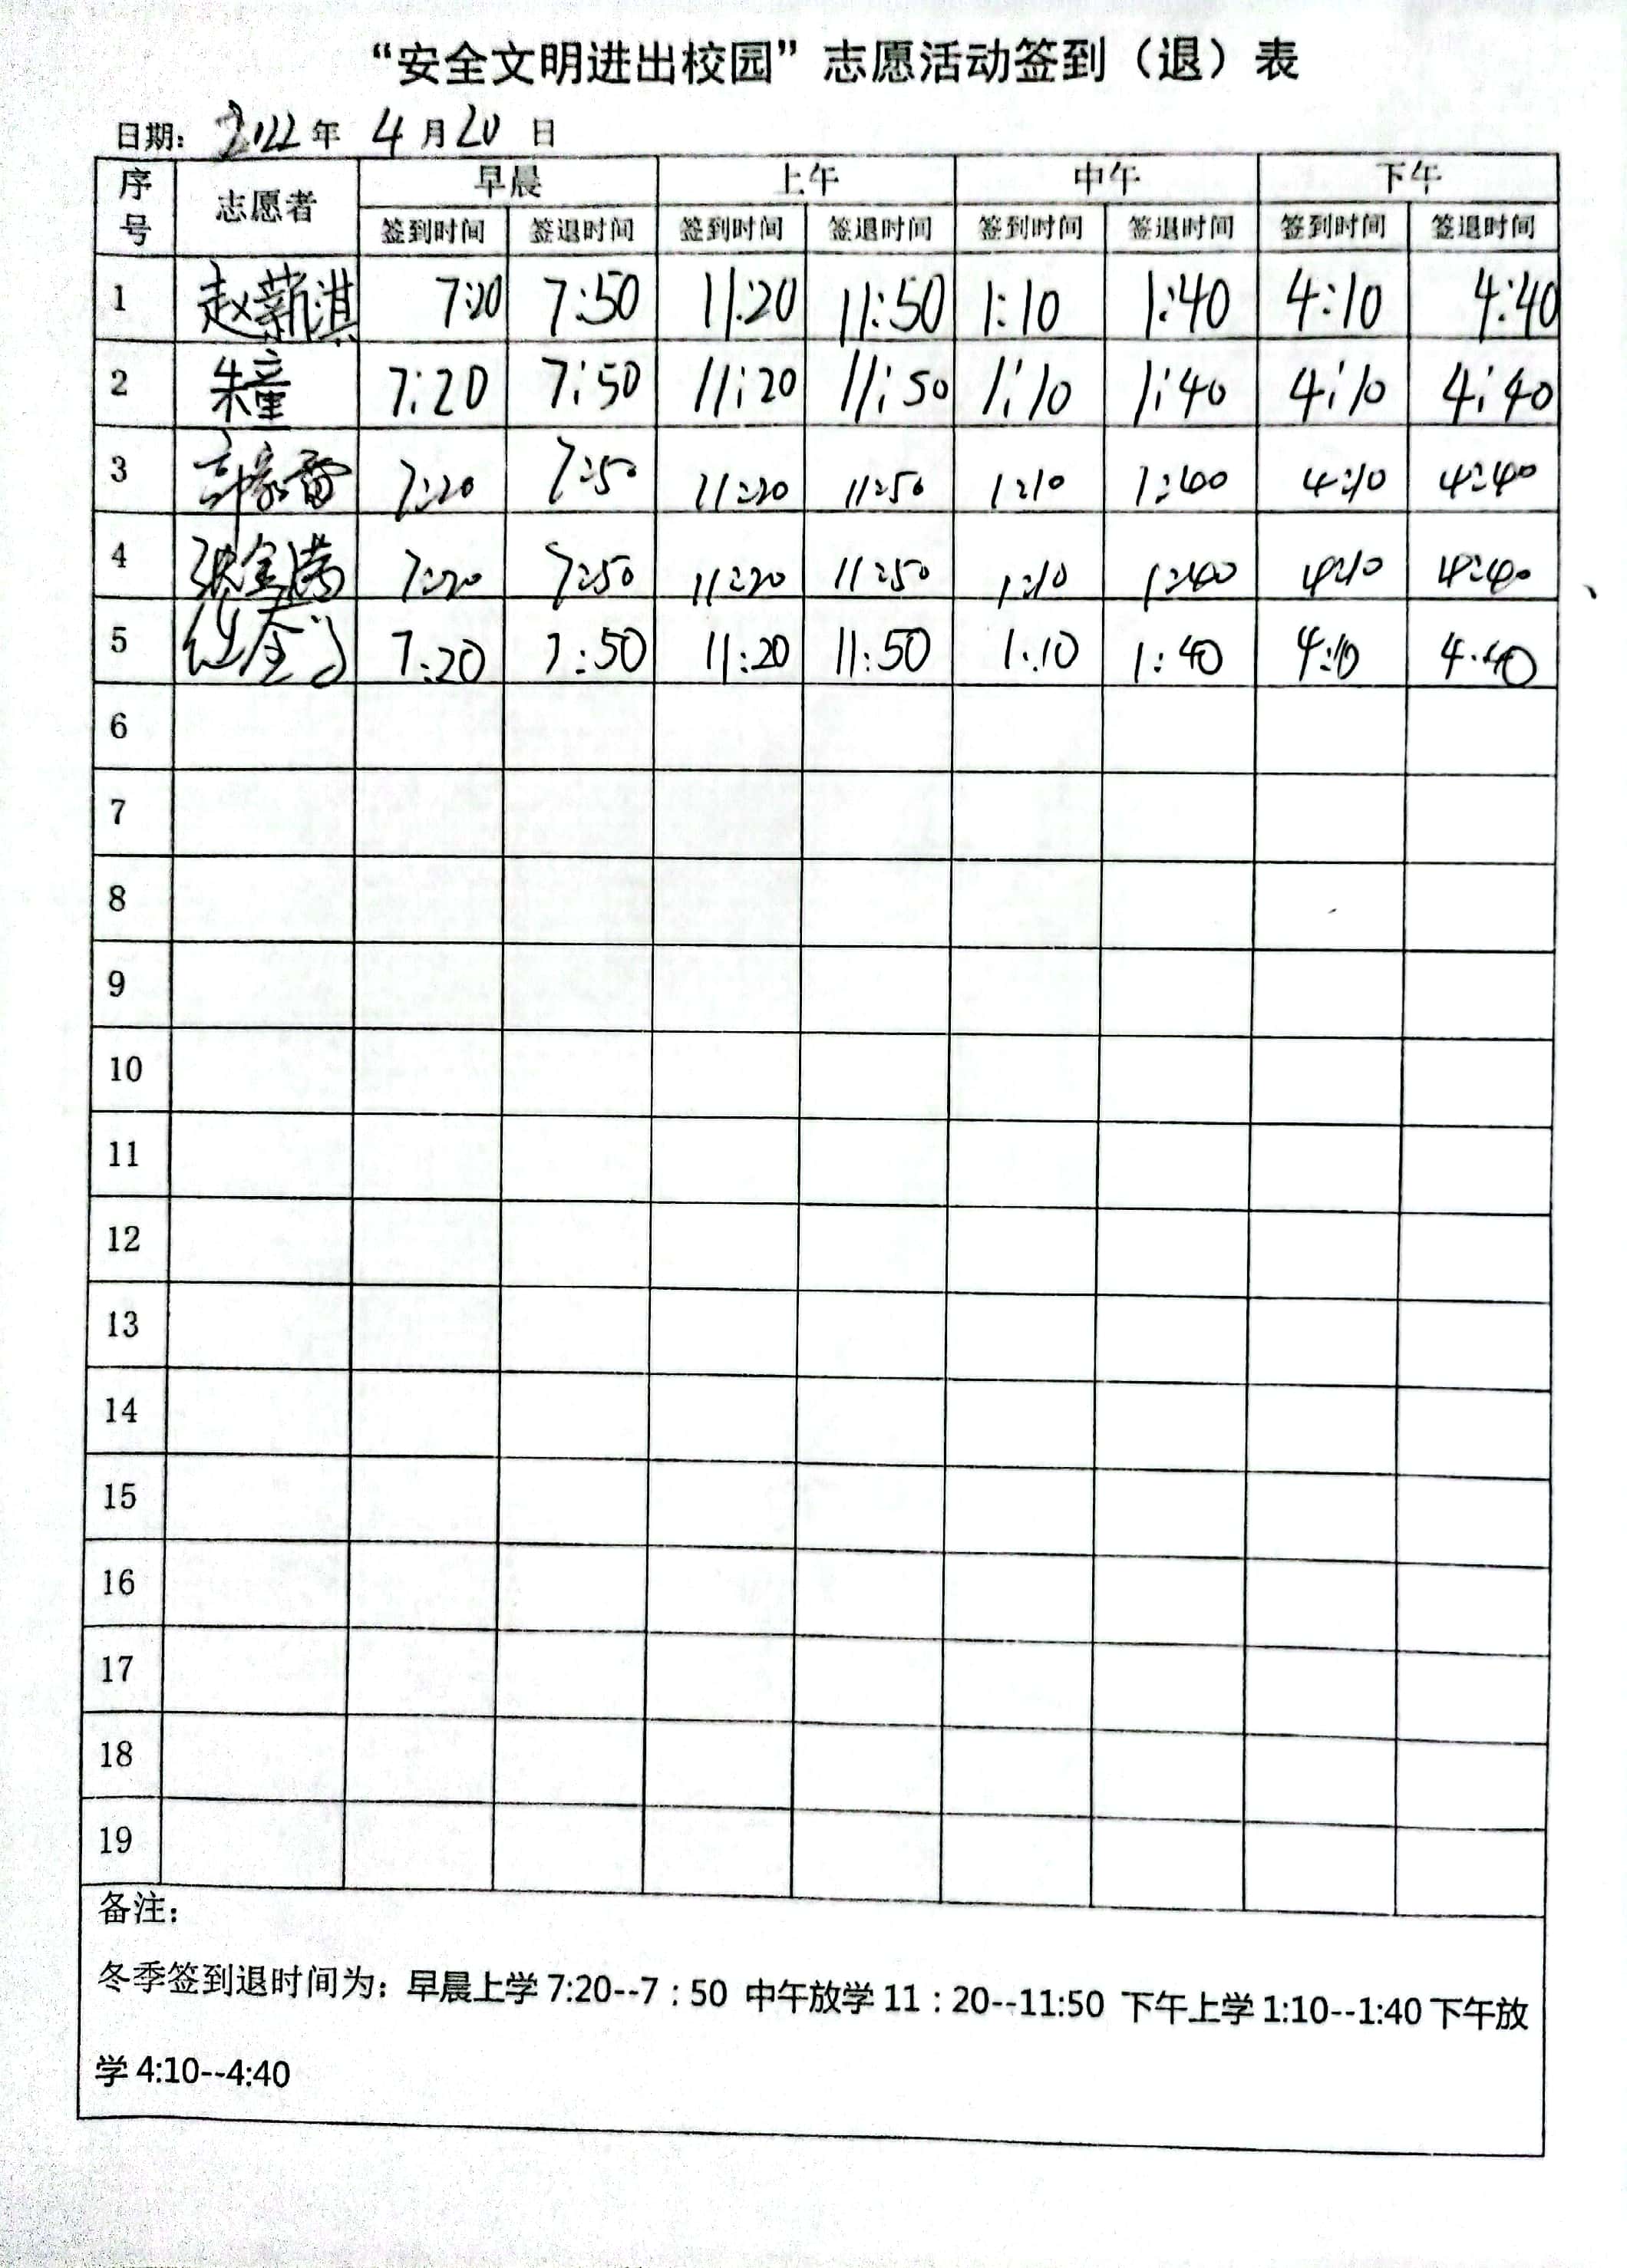 “安全文明进出校园”志愿活动签到（退）表
日期：2022年 4月20日
序号 志愿者 早晨 上午 中午 下午
签到时间 签退时间 签到时间 签退时间 签到时间 签退时间 签到时间 签退时间
1 赵薪淇 7:20 7:50 11:20 11:50 1:10 1:40 4:10 4:40
2 朱童 7:20 7:50 11:20 11:50 1:10 1:40 4:10 4:40
3 7:20 7:50 11:20 11:50 1:10 1:40 4:10 4:40
4 张金满 7:20 7:50 11:20 11:50 1:10 1:40 4:10 4:40
5 7:20 7:50 11:20 11:50 1:10 1:40 4:10 4:40
6
7
8
9
10
11
12
13
14
15
16
17
18
19
备注：
冬季签到退时间为：早晨上学7:20--7：50 中午放学11：20--11:50 下午上学1:10--1:40下午放
学4:10--4:40